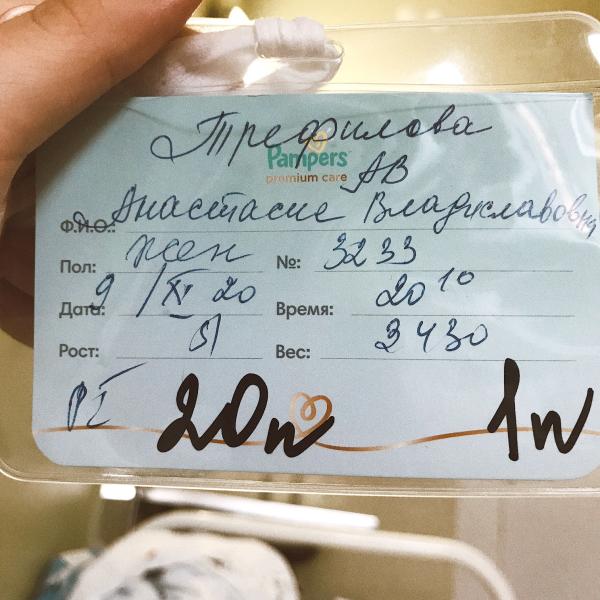 Трефилова
Pampers
premium care
АВ
Ф.И.О.: Анастасие Владиславовны
Пол: жен №: 3233
Дата: 9/XI 20 Время: 20 10
Рост: 51 Вес: 3430
20п 1п